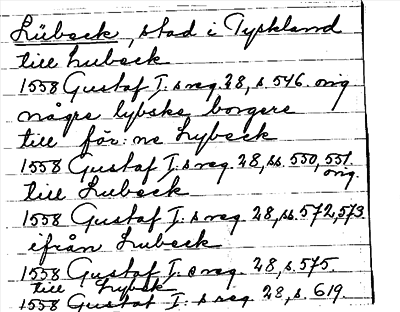 Lübeck, stad i Tyskland
till Lubeck
1558 Gustaf I.s reg. 28, s. 546. orig
några lybske borgere
till för:ne Lybeck
1558 Gustaf I.s reg. 28, ss. 550, 551.
orig.
till Lubeck
1558 Gustaf I:s reg. 28, ss. 572, 573
ifrån Lubeck
1558 Gustaf I. s reg. 28, s. 575.
till Lybek
1558 Gustaf I: s reg 28, s. 619.